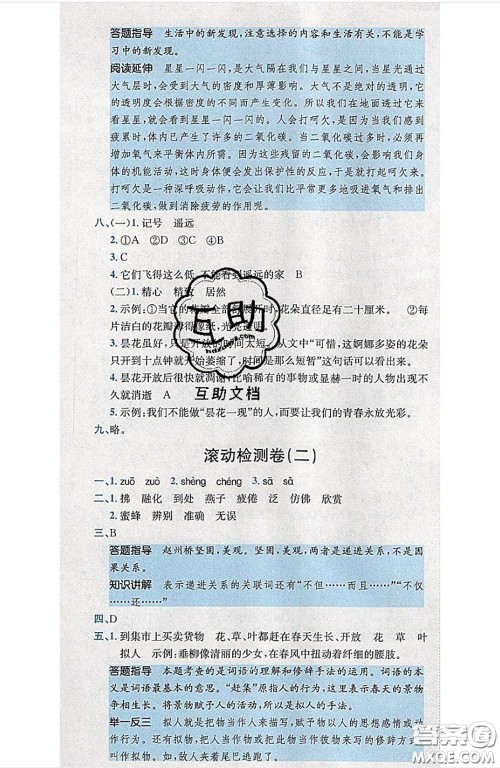 答题指导　生活中的新发现,注意选择的内容和生活有关,不能是学
习中的新发现。
阅读延伸　星星一闪一闪的,是大气隔在我们与星星之间,当星光通过
大气层时,会受到大气的密度和厚薄影响。大气不是绝对的透明,
它的透明度会根据密度的不同而产生变化。所以我们在地面透过它来
看星星,就会看到星星一闪一闪的。人会打呵欠,是因为当我们感到
疲累时,体内已产生了许多的二氧化碳。当二氧化碳过多时,必须再
增加氧气来平衡体内所需。因为这些残留的二氧化碳,会影响我们身
体的机能活动,这时身体便会发出保护性的反应,于是就打起呵欠来。
打呵欠是一种深呼吸动作,它会让我们比平常更多地吸进氧气和排出
二氧化碳,做到消除疲劳的作用呢。
八、(一)1. 记号　遥远
2. ①A　②D　④
3. C
4. 它们飞得这么低,不能看到遥远的家　B
(二)1. 精心　精致　居然
2. 示例:①当它的花瓣全部　时,花朵直径足有二十厘米。　②每
片洁白的花瓣薄得像纸,光滑
3. 昙花虽好,只是开放的时间太短。从文中“可惜,这婀娜多姿的花朵
只开到十点钟就开始萎缩了,时间是那么短暂”这句话可以看出。
4. 昙花开放后很快就凋谢,比喻稀有的事物或显赫一时的人物出现不
久就消失
5. 示例:我们不能做“昙花一现”的人,而要让我们的青春永放光彩。
九、略。
互助
互助文档
滚动检测卷(二)
一、1. zuō　zuò　2. shèng　chéng　3. sā　sǎ
二、1. 拂　融化　到处　燕子　疲倦　泛　仿佛　欣赏
2. 蜜蜂　辨别　准确　无误
三、B
答题指导　赵州桥坚固,美观。坚固,美观,两者是递进关系,不是因
果关系。
知识讲解　表示递进关系的关联词还有“不但……而且……”“不仅
……还……”
四、D
五、1. 到集市上买卖货物　花、草、叶都赶在春天生长、开放　花　草　叶
拟人　示例:垂柳像清丽的少女,在春风中扭动着纤细的腰肢。
答题指导　本题考查的是词语的理解和修辞手法的运用。词语的本
义是词语最基本的意思。“赶集”原指人的行为,这里表示春天的景物
争相生长。将景物赋予人的活动,所以是拟人的手法。
举一反三　拟人就是把物当作人来描写,赋予物以人的思想感情或动
作,把物当作人来描写。我们也可以把动物当作动物来写的修辞方
叫作拟物。如,敌人夹着尾巴逃跑了。
答案圈
MXQE.COM